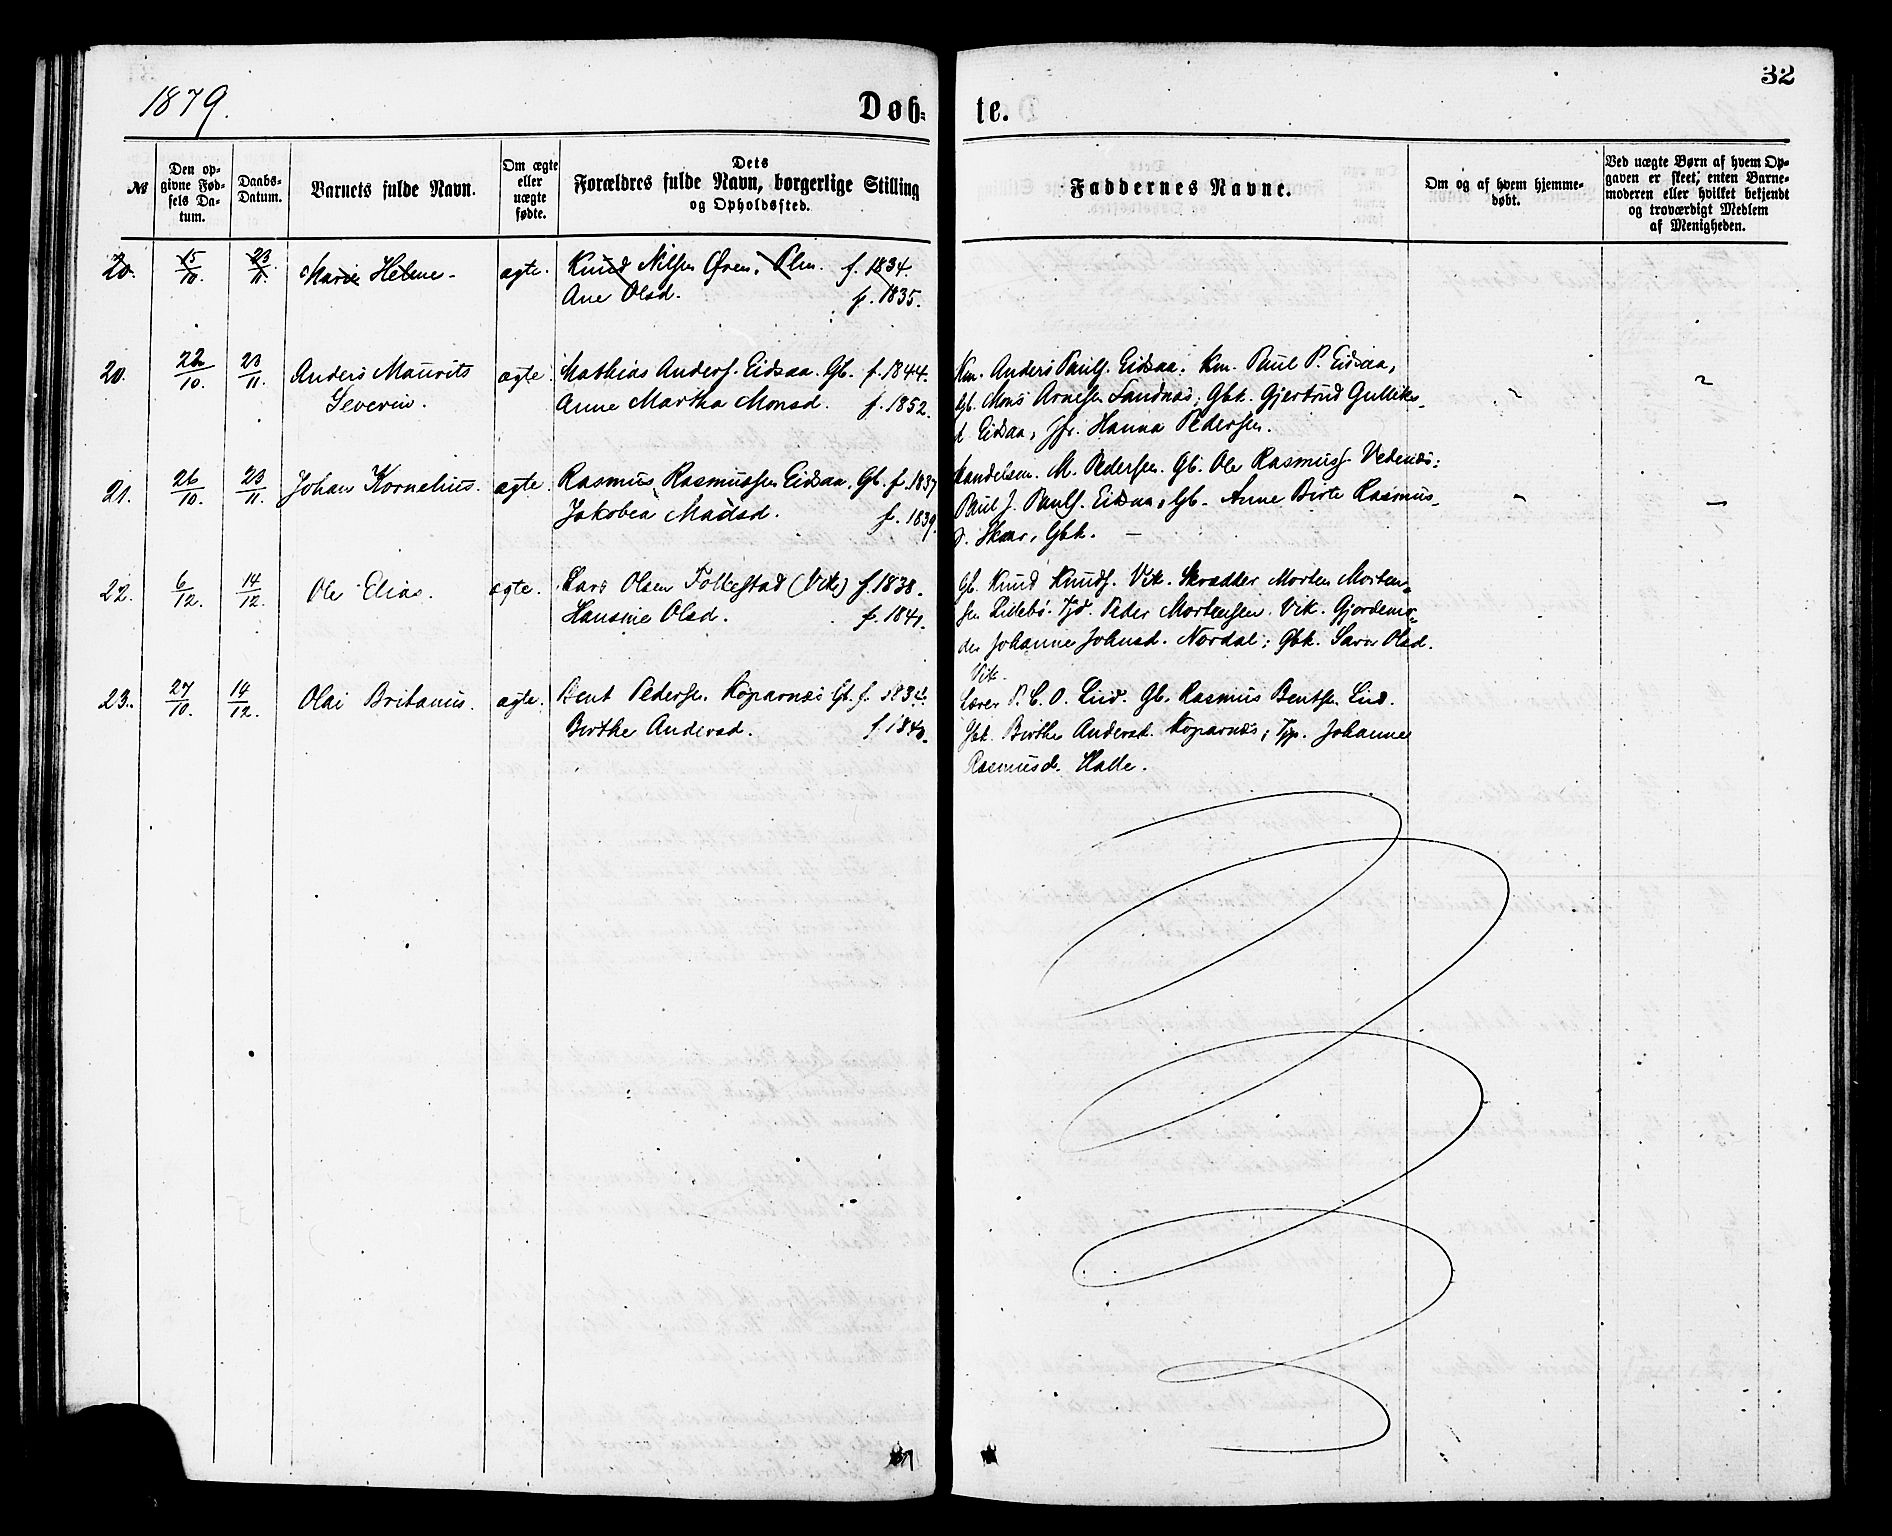 1879.
Døb-
te.
32
№
Den op-
givne Fød-
sels Da-
tum.
Daabs-
Datum.
Barnets fulde Navn.
Om ægte
eller
uægte
fødte.
Dets
Forældres fulde Navn, borgerlige Stilling
og Opholdssted.
Faddernes Navne.
Om og af hvem hjemme-
døbt.
Ved uægte Børn af hvem Op-
gaven er skeet, enten Barne-
moderen eller hvilket bekjendt
og troværdigt Medlem
af Menigheden.
20. 15/10. 23/11. Marie Heline - ægte. Knud Nilsen Øren, f. 1834.
Ane Olsd. f. 1835.
20. 22/10. 23/11. Anders Maurits ægte. Mathias Anders. Eidsaa. Gb. f. 1844.
Severin. Anne Martha Monsd. f. 1852.
Km. Anders Pauls. Eidsaa, Km. Paul P. Eidsaa,
Gb. Mons Arnesen Sandnæs, Gbk. Gjertrud Gulliks-
d. Eidsaa, Jfr. Hanna Pedersen.
21. 26/10. 23/11. Johan Kornelius. ægte. Rasmus Rasmussen Eidsaa, Gb. f. 1837
Jakobea Madsd. f. 1839.
Handelsm. M. Pedersen. Gb. Ole Rasmuss. Vedenæs;
Paul J. Pauls. Eidsaa, Gb. Anne Birte Rasmus-
d. Skaar, Gbk. —
22. 6/12. 14/12. Ole Elias. ægte. Lars Olsen Folkestad (Vik) f. 1838.
Hansine Olsd. f. 1841.
Gb. Knud Knuds. Vik. Skrædder Morten Morten-
sen Lillebø. Peder Mortensen Vik. Gjordemo-
der Johanne Johnsd. Nordal; Gbk. Sara Olsd.
Vik.
23. 27/10. 14/12. Olai Britanus. ægte. Bent Pedersen Koparnæs Gb. f. 1834.
Birthe Andersd. f. 1840.
Lærer P. C. O. Lind. Gb. Rasmus Bentsen Lid.
Gbk. Birthe Andersd. Koparnæs; Johanne
Rasmusd. Halle.